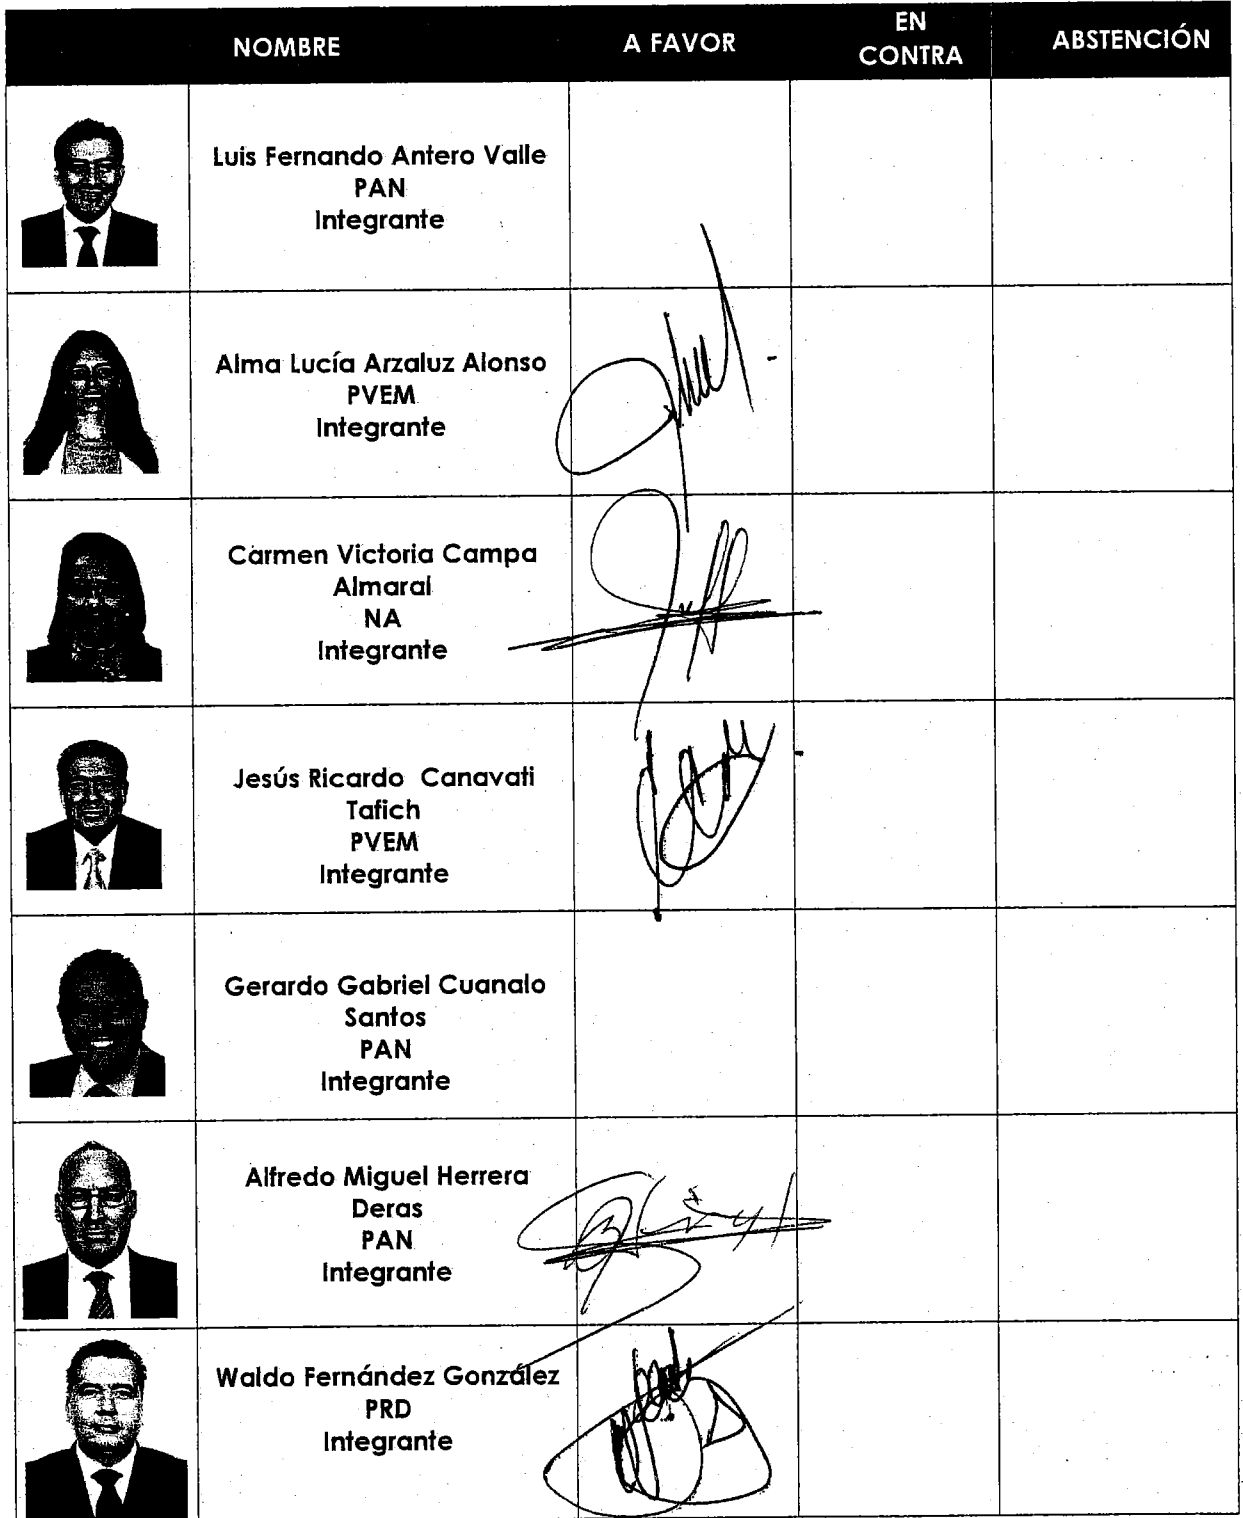 NOMBRE A FAVOR EN CONTRA ABSTENCIÓN
Luis Fernando Antero Valle
PAN
Integrante
Alma Lucía Arzaluz Alonso
PVEM
Integrante
Carmen Victoria Campa
Almaral
NA
Integrante
Jesús Ricardo Canavati
Tafich
PVEM
Integrante
Gerardo Gabriel Cuanalo
Santos
PAN
Integrante
Alfredo Miguel Herrera
Deras
PAN
Integrante
Waldo Fernández González
PRD
Integrante